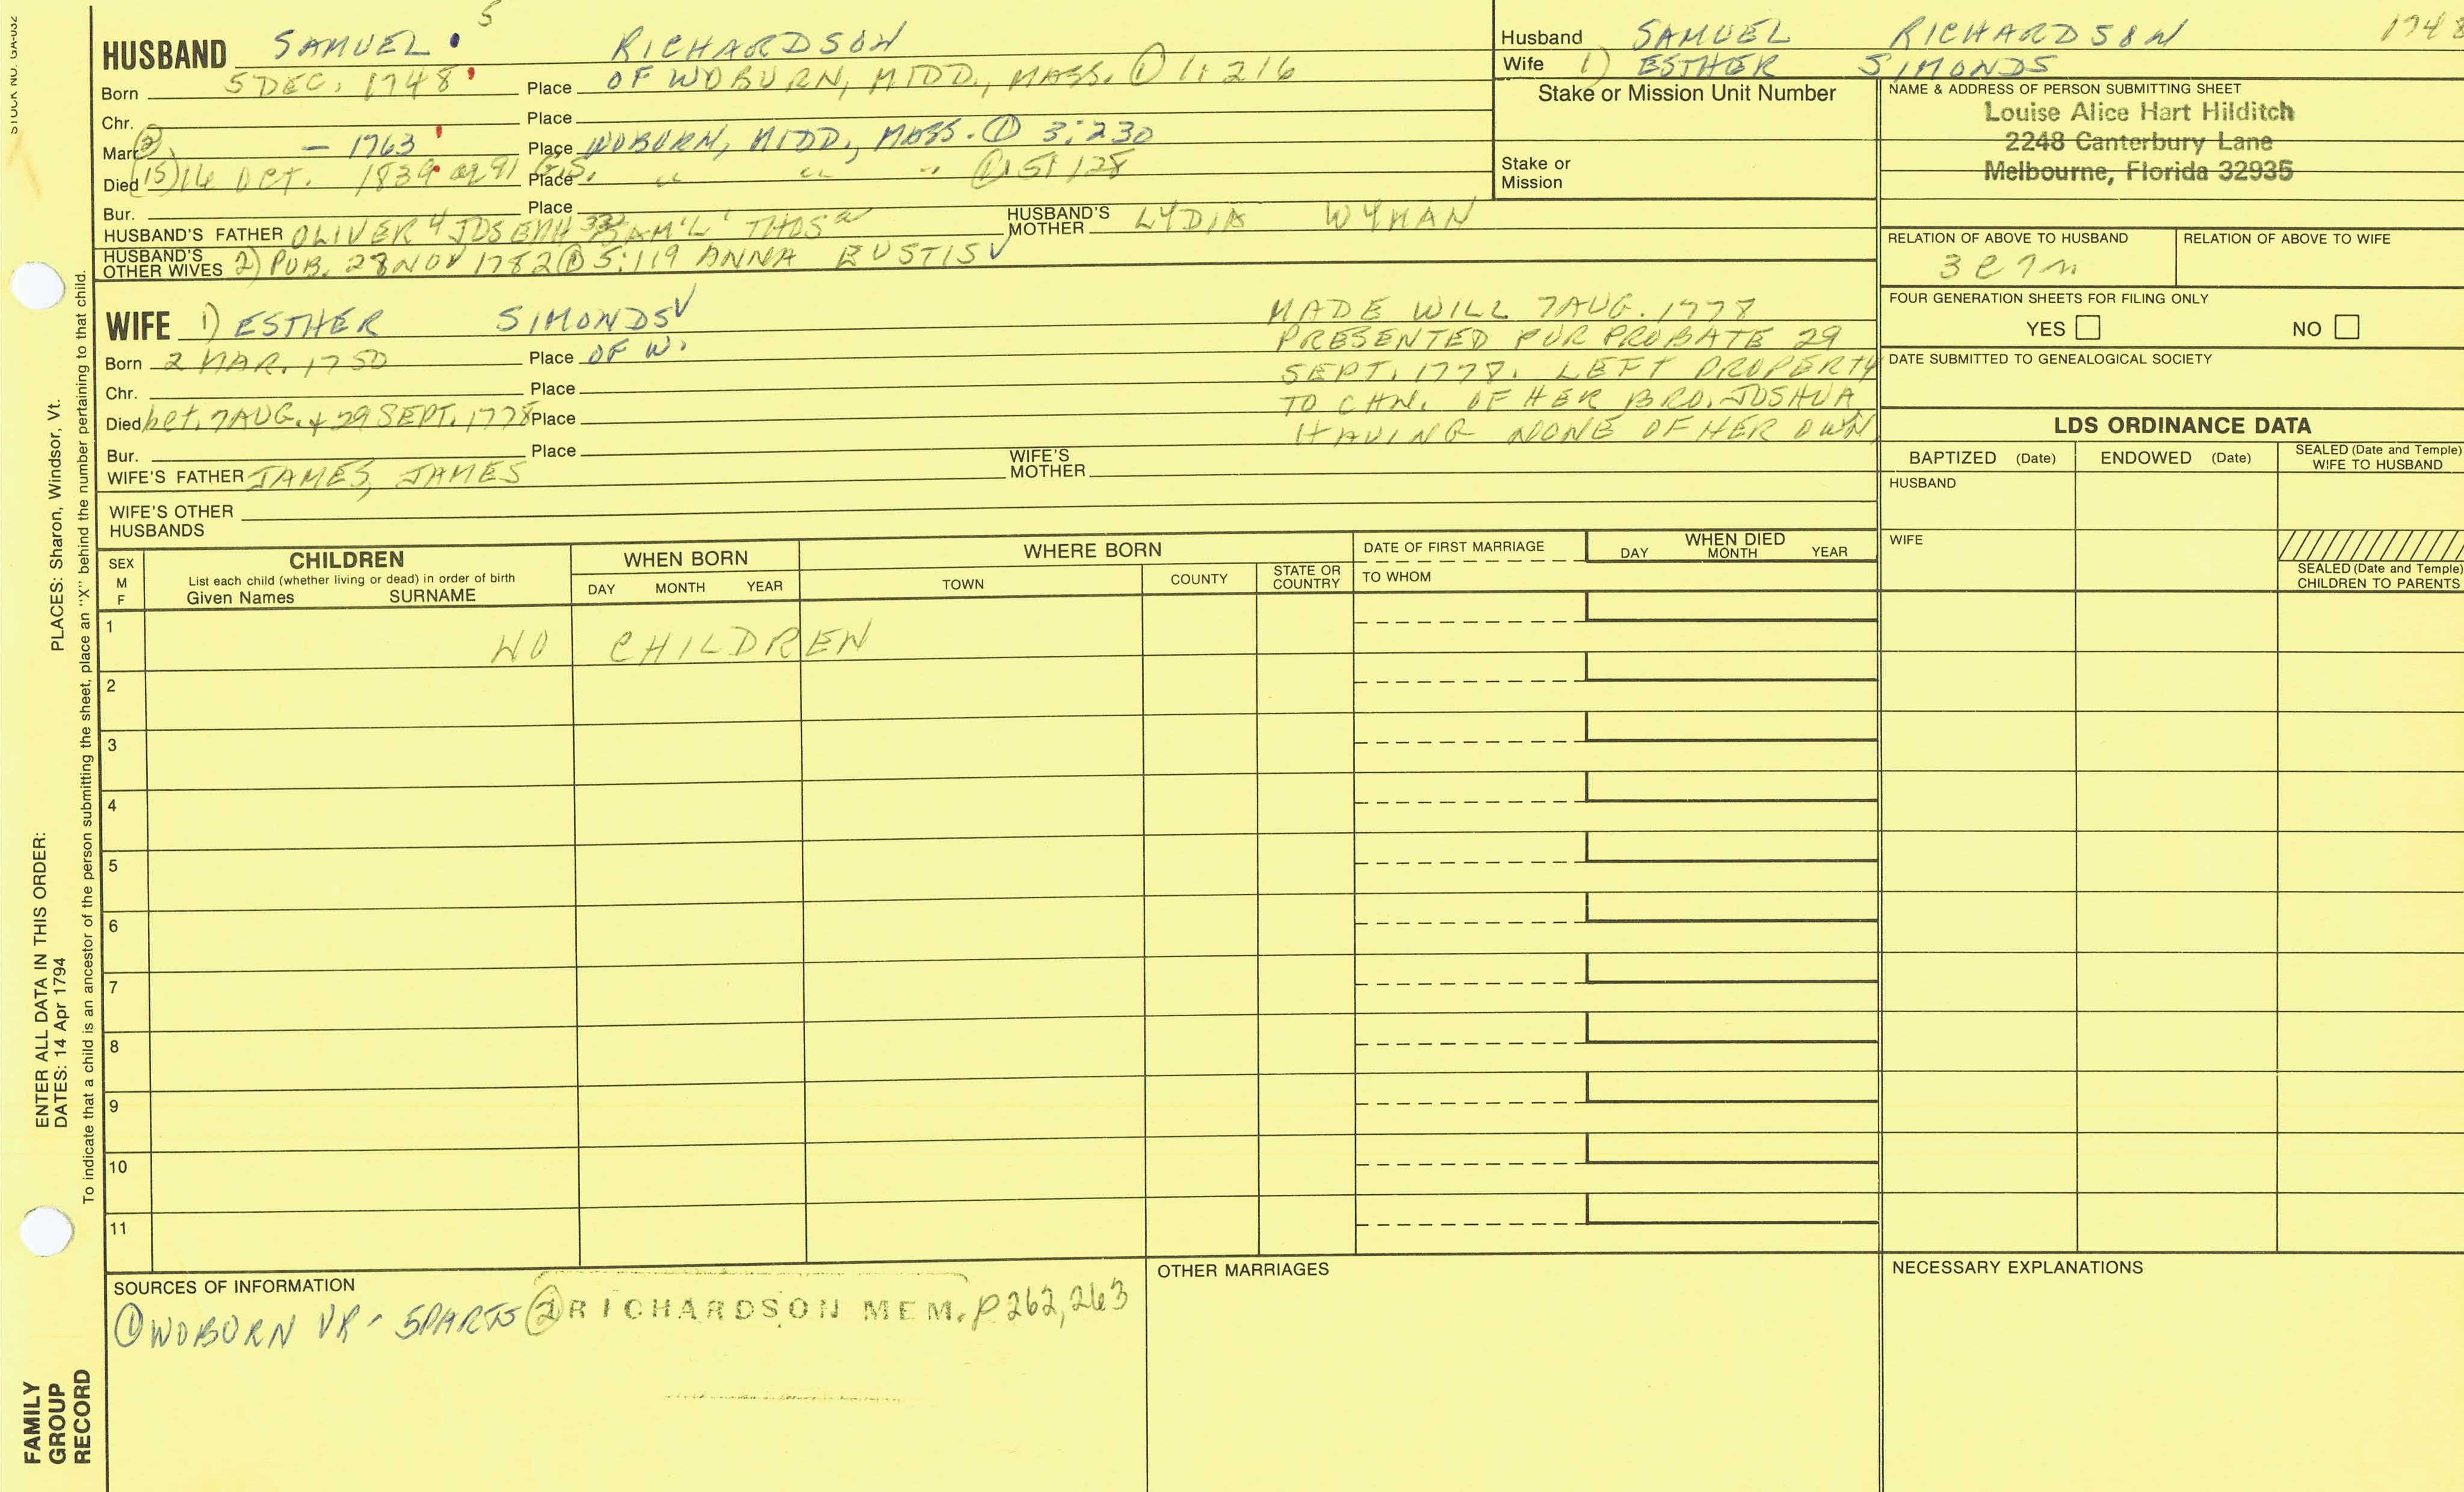 STOCK NO. GA-032
HUSBAND SAMUEL 5 RICHARDSON
Born 5 DEC. 1748 Place OF WOBURN, MIDD., MASS. ① 1:216
Chr. Place
Marr. ② – 1763 Place WOBURN, MIDD., MASS. ① 3:230
Died (15) 16 OCT. 1839 Place " " " ①
Bur. Place
HUSBAND'S FATHER OLIVER 4 JOSEPH 3 SAM'L THOS HUSBAND'S MOTHER LYDIA WYMAN
HUSBAND'S OTHER WIVES 2) PUB. 28 NOV 1782 ① 5:119 ANNA EUSTIS √
Husband SAMUEL RICHARDSON 1748
Wife 1) ESTHER SIMONDS
Stake or Mission Unit Number
Stake or
Mission
NAME & ADDRESS OF PERSON SUBMITTING SHEET
Louise Alice Hart Hilditch
2248 Canterbury Lane
Melbourne, Florida 32935
RELATION OF ABOVE TO HUSBAND RELATION OF ABOVE TO WIFE
3C7R
FOUR GENERATION SHEETS FOR FILING ONLY
YES NO
DATE SUBMITTED TO GENEALOGICAL SOCIETY
WIFE 1) ESTHER SIMONDS √
Born 2 MAR. 1750 Place OF W.
Chr. Place
Died bet. 7 AUG. + 29 SEPT. 1778 Place
Bur. Place
WIFE'S FATHER JAMES, JAMES WIFE'S MOTHER
WIFE'S OTHER
HUSBANDS
MADE WILL 7 AUG. 1778
PRESENTED FOR PROBATE 29
SEPT. 1778. LEFT PROPERTY
TO CHN. OF HER BRO. JOSHUA,
HAVING NONE OF HER OWN
LDS ORDINANCE DATA
BAPTIZED (Date) ENDOWED (Date) SEALED (Date and Temple) WIFE TO HUSBAND
HUSBAND
WIFE
SEALED (Date and Temple)
CHILDREN TO PARENTS
SEX M F CHILDREN
List each child (whether living or dead) in order of birth
Given Names SURNAME
WHEN BORN
DAY MONTH YEAR
WHERE BORN
TOWN COUNTY STATE OR COUNTRY
DATE OF FIRST MARRIAGE
TO WHOM
WHEN DIED
DAY MONTH YEAR
1 NO CHILDREN
2
3
4
5
6
7
8
9
10
11
SOURCES OF INFORMATION
① WOBURN VR - 5 PARTS ② RICHARDSON MEM. p 262, 263
OTHER MARRIAGES
NECESSARY EXPLANATIONS
PLACES: Sharon, Windsor, Vt.
To indicate that a child is an ancestor of the person submitting the sheet, place an "X" behind the number pertaining to that child.
ENTER ALL DATA IN THIS ORDER:
DATES: 14 Apr 1794
FAMILY
GROUP
RECORD